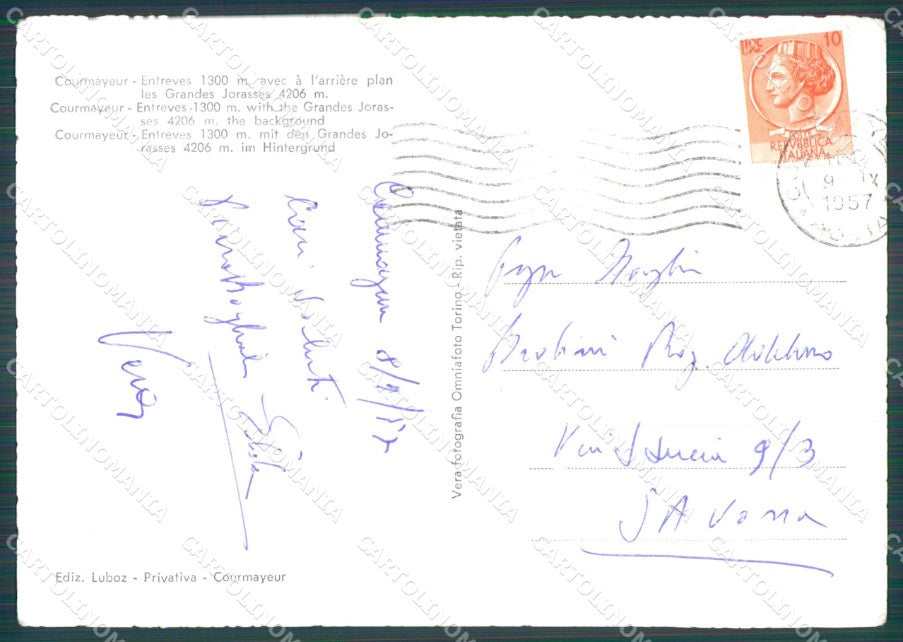 Courmayeur - Entreves 1300 m. avec à l'arrière plan
les Grandes Jorasses 4206 m.
Courmayeur - Entreves 1300 m. with the Grandes Joras-
ses 4206 m. the background
Courmayeur - Entreves 1300 m. mit den Grandes Jo-
rasses 4206 m. im Hintergrund
LIRE 10
POSTE
REPVBBLICA
ITALIANA
9 IX
1957
Courmayeur 8/9/57
Cari saluti
Vera
Vera fotografia Omniafoto Torino - Rip. vietata
Via S Lucia 9/3
SAvona
Ediz. Luboz - Privativa - Courmayeur
CARTOLINOMANIA